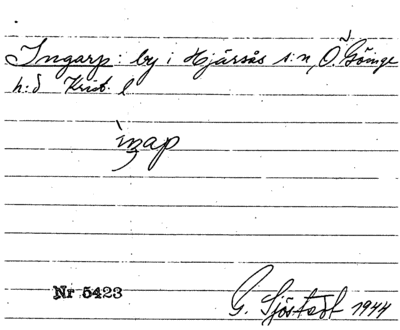 Ingarp: by i Hjärsås s:n, Ö. Göinge
h:d Krist. l
ìŋap
Nr 5423
G. Sjöstedt 1944